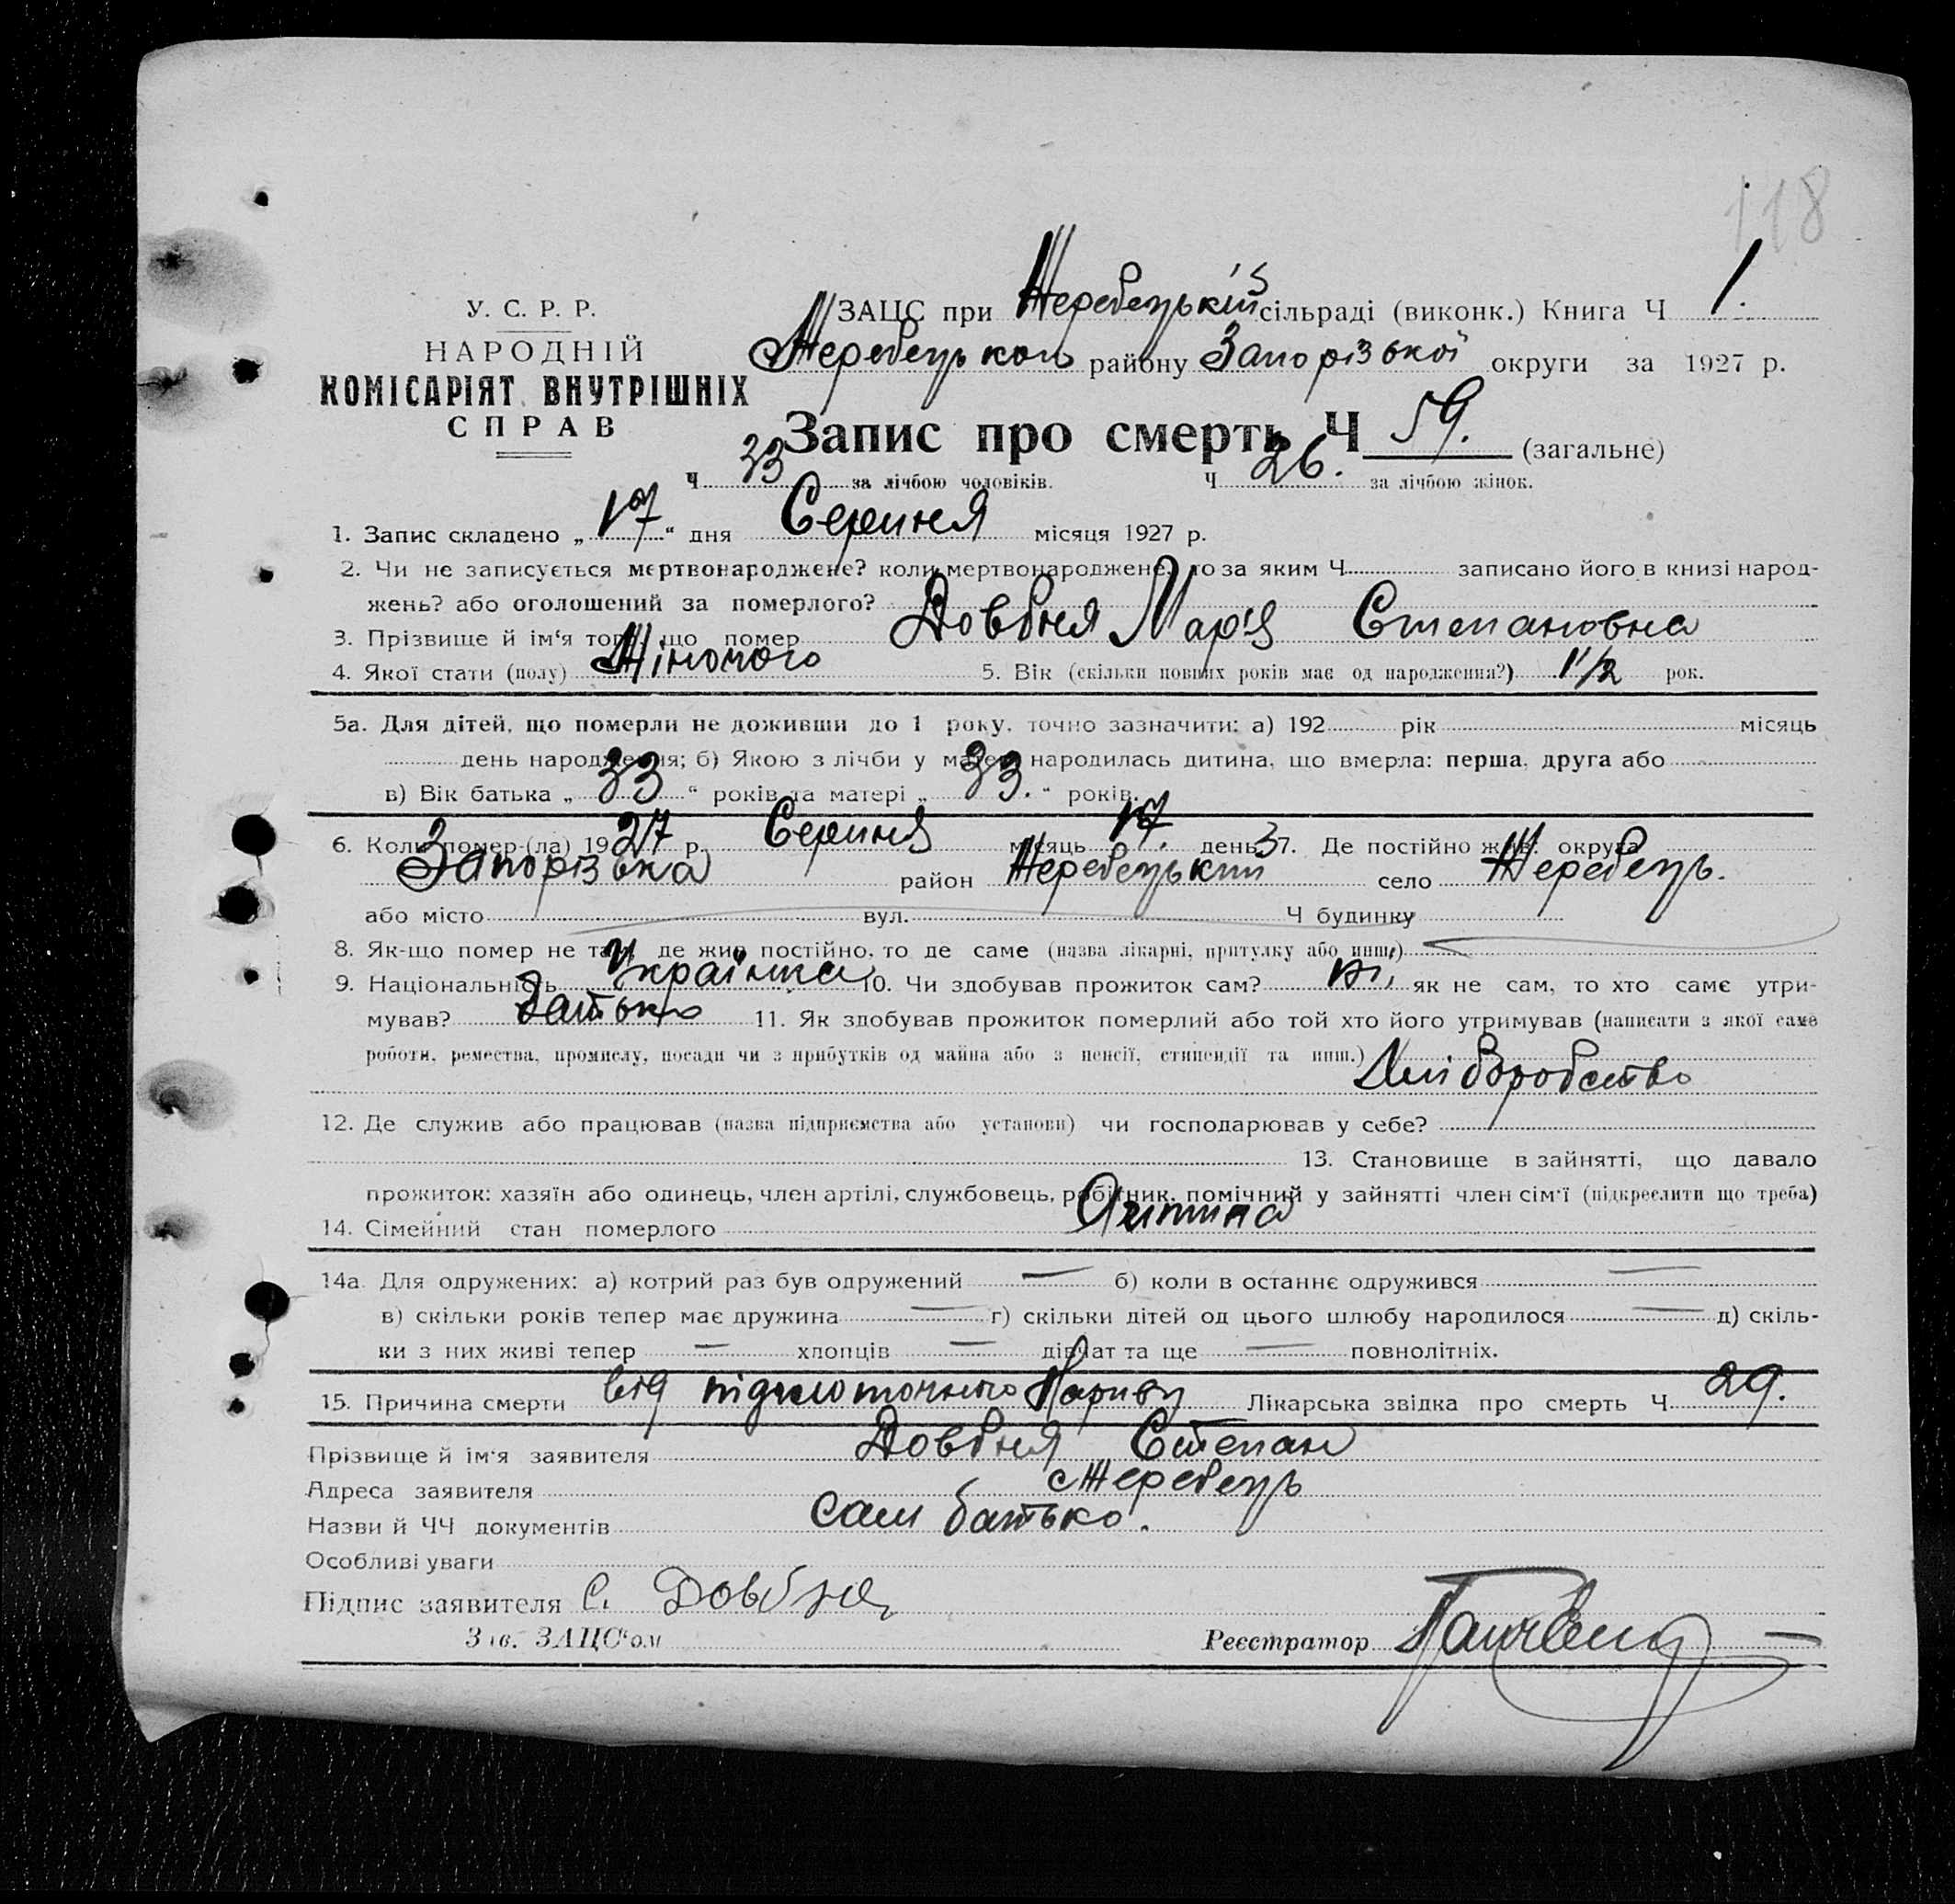 118
У. С. Р. Р.
НАРОДНІЙ
КОМІСАРІЯТ ВНУТРІШНІХ
СПРАВ
ЗАЦС при Жеребецькій сільраді (виконк.) Книга Ч 1.
Жеребецького району Запорізької округи за 1927 р.
Запис про смерть Ч 59. (загальне)
Ч 33 за лічбою чоловіків. Ч 26. за лічбою жінок.
1. Запис складено „17“ дня Серпня місяця 1927 р.
2. Чи не записується мертвонароджене? коли мертвонароджене, то за яким Ч записано його в книзі народ-
жень? або оголошений за померлого?
3. Прізвище й ім‘я того, що помер Довбня Мар'я Степановна
4. Якої стати (полу) Жіночого 5. Вік (скільки повних років має од народження?) 1 1/2 рок.
5а. Для дітей, що померли не доживши до 1 року, точно зазначити: а) 192 рік місяць
день народження; б) Якою з лічби у матері народилась дитина, що вмерла: перша, друга або
в) Вік батька „33“ років та матері „33.“ років.
6. Коли помер-(ла) 1927 р. Серпня місяць 17. день 7. Де постійно жив: округа
Запорізька район Жеребецький село Жеребець.
або місто вул. Ч будинку
8. Як-що помер не там, де жив постійно, то де саме (назва лікарні, притулку або инше)
9. Національність Українка 10. Чи здобував прожиток сам? ні, як не сам, то хто саме утри-
мував? батько 11. Як здобував прожиток померлий або той хто його утримував (написати з якої саме
роботи, ремества, промислу, посади чи з прибутків од майна або з пенсії, стипендії та инш.)
Хліборобство
12. Де служив або працював (назва підприємства або установи) чи господарював у себе?
13. Становище в зайнятті, що давало
прожиток: хазяїн або одинець, член артілі, службовець, робітник, помічний у зайнятті член сім‘ї (підкреслити що треба)
14. Сімейний стан померлого Дитина
14а. Для одружених: а) котрий раз був одружений — б) коли в останнє одружився —
в) скільки років тепер має дружина — г) скільки дітей од цього шлюбу народилося — д) скіль-
ки з них живі тепер — хлопців — дівчат та ще — повнолітніх.
15. Причина смерти від підглоточного Нариву Лікарська звідка про смерть Ч 29.
Прізвище й ім‘я заявителя Довбня Степан
Адреса заявителя с Жеребець
Назви й ЧЧ документів сам батько.
Особливі уваги
Підпис заявителя С. Довбня
Зав. ЗАЦС‘ом Реєстратор